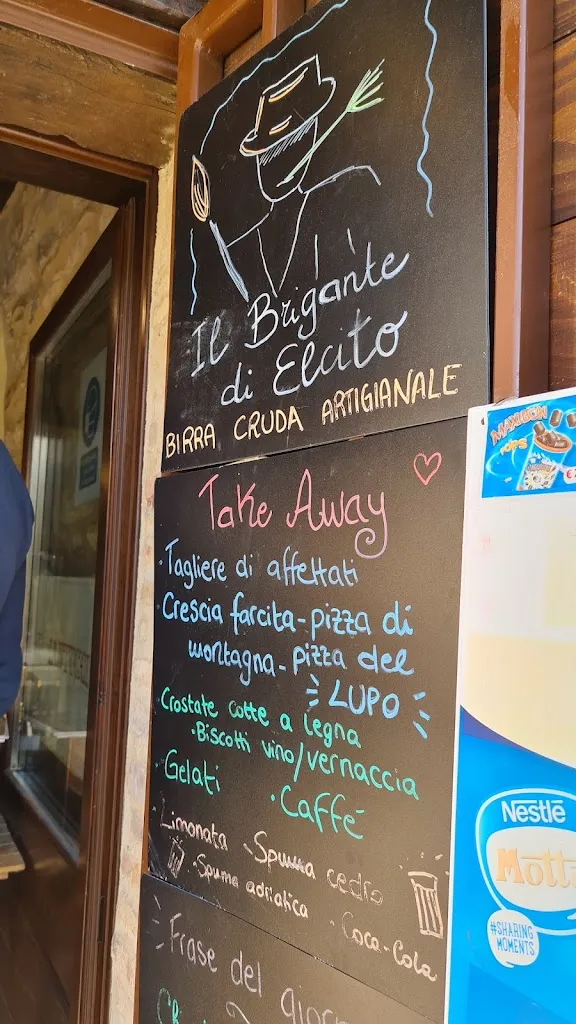 Il Brigante
di Elcito
BIRRA CRUDA ARTIGIANALE
Take Away
· Tagliere di affettati
· Crescia farcita - pizza di
montagna - pizza del
LUPO
· Crostate cotte a legna
· Biscotti vino/vernaccia
· Gelati
· Caffé
· Limonata · Spuma cedro
· Spuma adriatica
· Coca-Cola
Frase del giorn
MAXIBON
POPS
Nestlé
Motta
#SHARING
MOMENTS